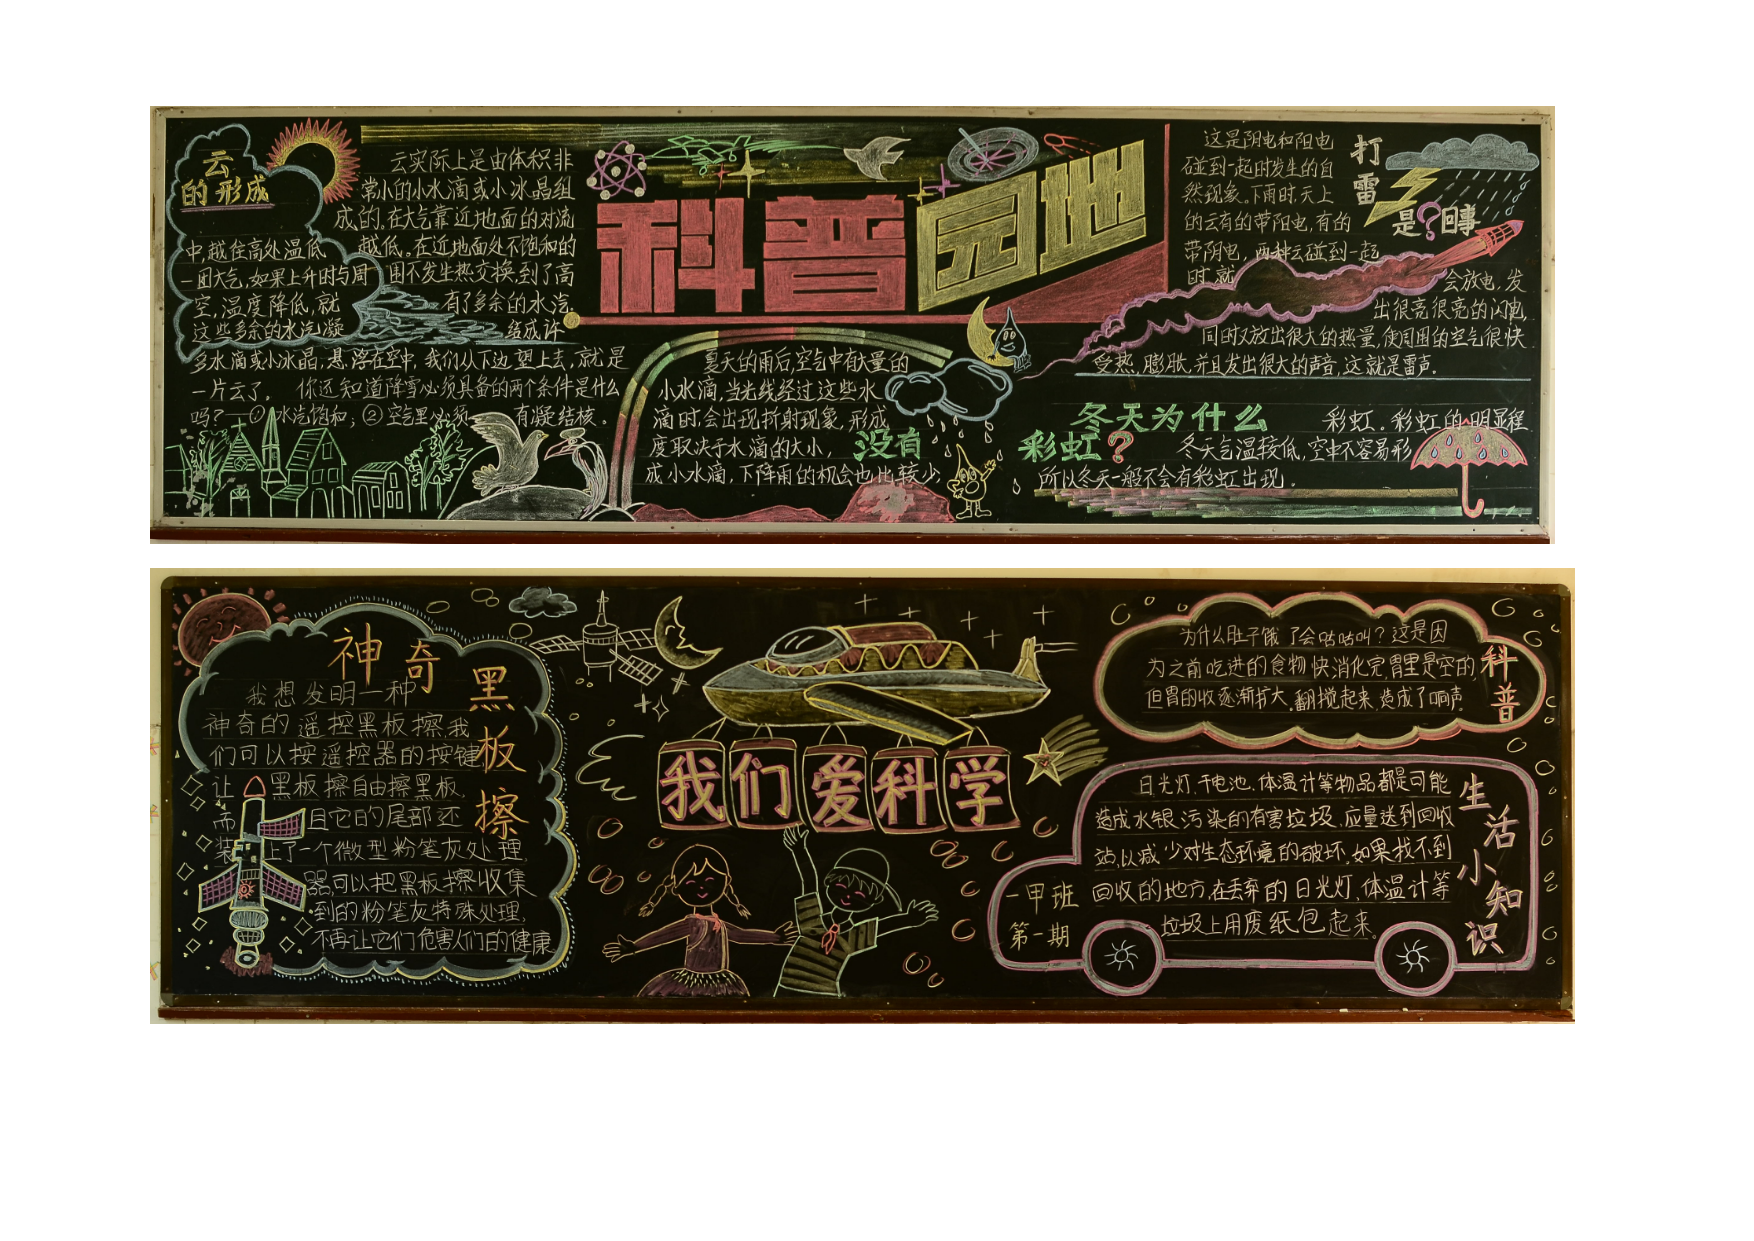 云
的形成
云实际上是由体积非
常小的小水滴或小冰晶组
成的。在大气靠近地面的对流
中,越往高处温低越低。在近地面处不饱和的
一团大气,如果上升时与周围不发生热交换,到了高
空,温度降低,就有了多余的水汽.
这些多余的水汽凝结成许
多水滴或小冰晶,悬浮在空中,我们从下边望上去,就是
一片云了。你还知道降雪必须具备的两个条件是什么
吗?—①水汽饱和;②空气里必须有凝结核。
科普园地
夏天的雨后,空气中有大量的
小水滴,当光线经过这些水
滴时,会出现折射现象,形成
彩虹.彩虹的明显程
度取决于水滴的大小,
冬天为什么
没有彩虹?
冬天气温较低,空中不容易形
成小水滴,下阵雨的机会也比较少,
所以冬天一般不会有彩虹出现.
打雷
是?回事
这是阴电和阳电
碰到一起时发生的自
然现象.下雨时,天上
的云有的带阳电,有的
带阴电,两种云碰到一起
时,就会放电,发
出很亮很亮的闪电,
同时又放出很大的热量,使周围的空气很快
受热,膨胀,并且发出很大的声音,这就是雷声.
神奇黑板擦
我想发明一种
神奇的遥控黑板擦,我
们可以按遥控器的按键
让黑板擦自由擦黑板,
而且它的尾部还
装上了一个微型粉笔灰处理
器,可以把黑板擦收集
到的粉笔灰特殊处理,
不再让它们危害人们的健康
我们爱科学
科普
为什么肚子饿了会咕咕叫?这是因
为之前吃进的食物快消化完,胃里是空的,
但胃的收逐渐扩大,翻搅起来,造成了响声.
生活小知识
日光灯.干电池.体温计等物品都是可能
造成水银污染的有害垃圾.应量送到回收
站,以减少对生态环境的破坏.如果找不到
回收的地方,在丢弃的日光灯,体温计等
垃圾上用废纸包起来.
一甲班
第一期